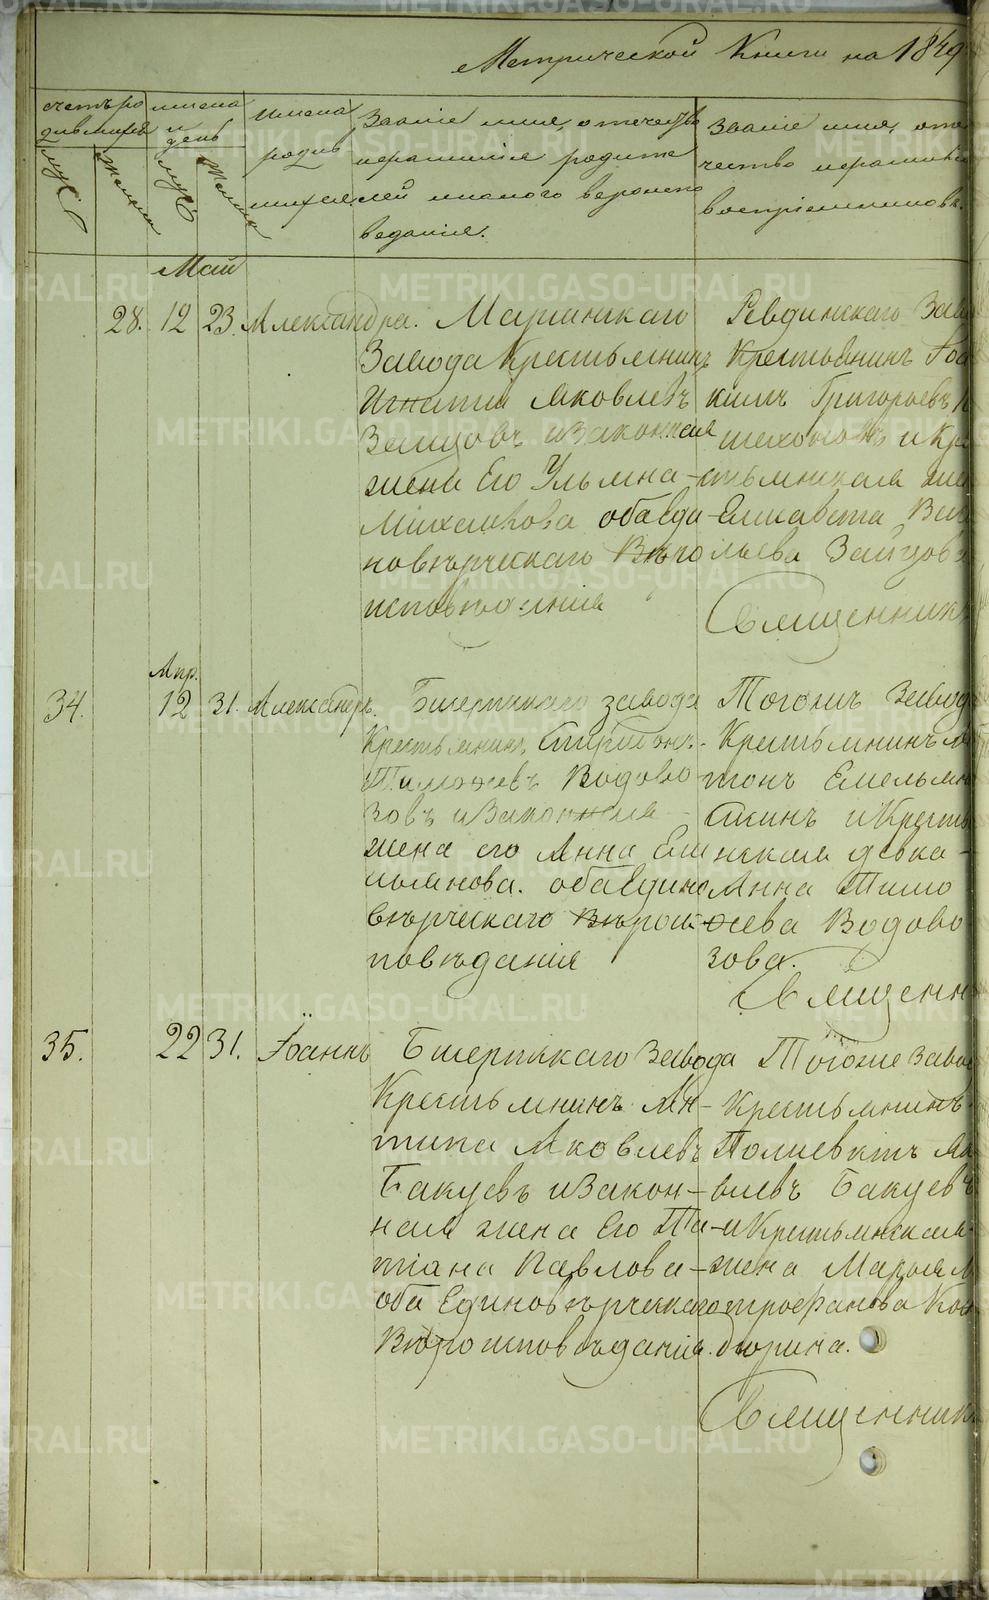 Метрической Книги на 1849
счетъ ро
дившихся
муж
женск
числа
и
день
муж
женск
имена
родив
шихся
Званіе имя, отечество
и фамилія родите
лей и какого вероиспо
веданія.
Званіе имя, оте
чество и фамилія
воспріемниковъ.
Май
28. 12 23. Александра. Маріинскаго
Завода Крестьянинъ
Игнатій Яковлевъ
Зайцовъ и Законная
жена Его Ульяна
Михайлова оба Еди
новѣрческаго Вѣро
исповѣданія
Ревдинскаго Зав
Крестьянинъ Іоа
кимъ Григорьевъ
шехоновъ и Кре
стьянская же
Елисавета Ва
ильева Зайцова
Священникъ
Апр.
34. 12 31. Александръ. Бисертскаго завода
Крестьянинъ
Тимофеевъ Водово
зовъ и Законная
жена его Анна Еме
льянова. оба Едино
вѣрческаго Вѣроис
повѣданія
Тогожъ Завода
Крестьянинъ
Емельян
и Кресть
янская девка
Анна Тимо
феева Водово
зова.
Священн
35. 22 31. Іоаннъ Бисертскаго Завода
Крестьянинъ Ан
типа Яковлевъ
Бакуевъ и Закон
ная жена Его Та
тіана Павлова
оба Единовѣрческаго
Вѣроисповѣданія.
Тогоже Завод
Крестьянинъ
Поліевктъ Яко
влевъ Бакуевъ
и Крестьянская
жена Марья М
трофанова Ко
бюрина.
Священникъ
METRIKI.GASO-URAL.RU